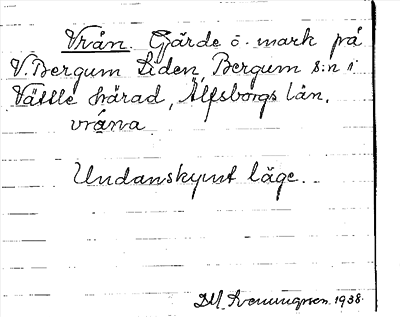 Vrån. Gjärde o. mark på
V. Bergum Liden, Bergum s:n i
Vättle härad, Älfsborgs län.
vråna
Undanskymt läge.
1938.